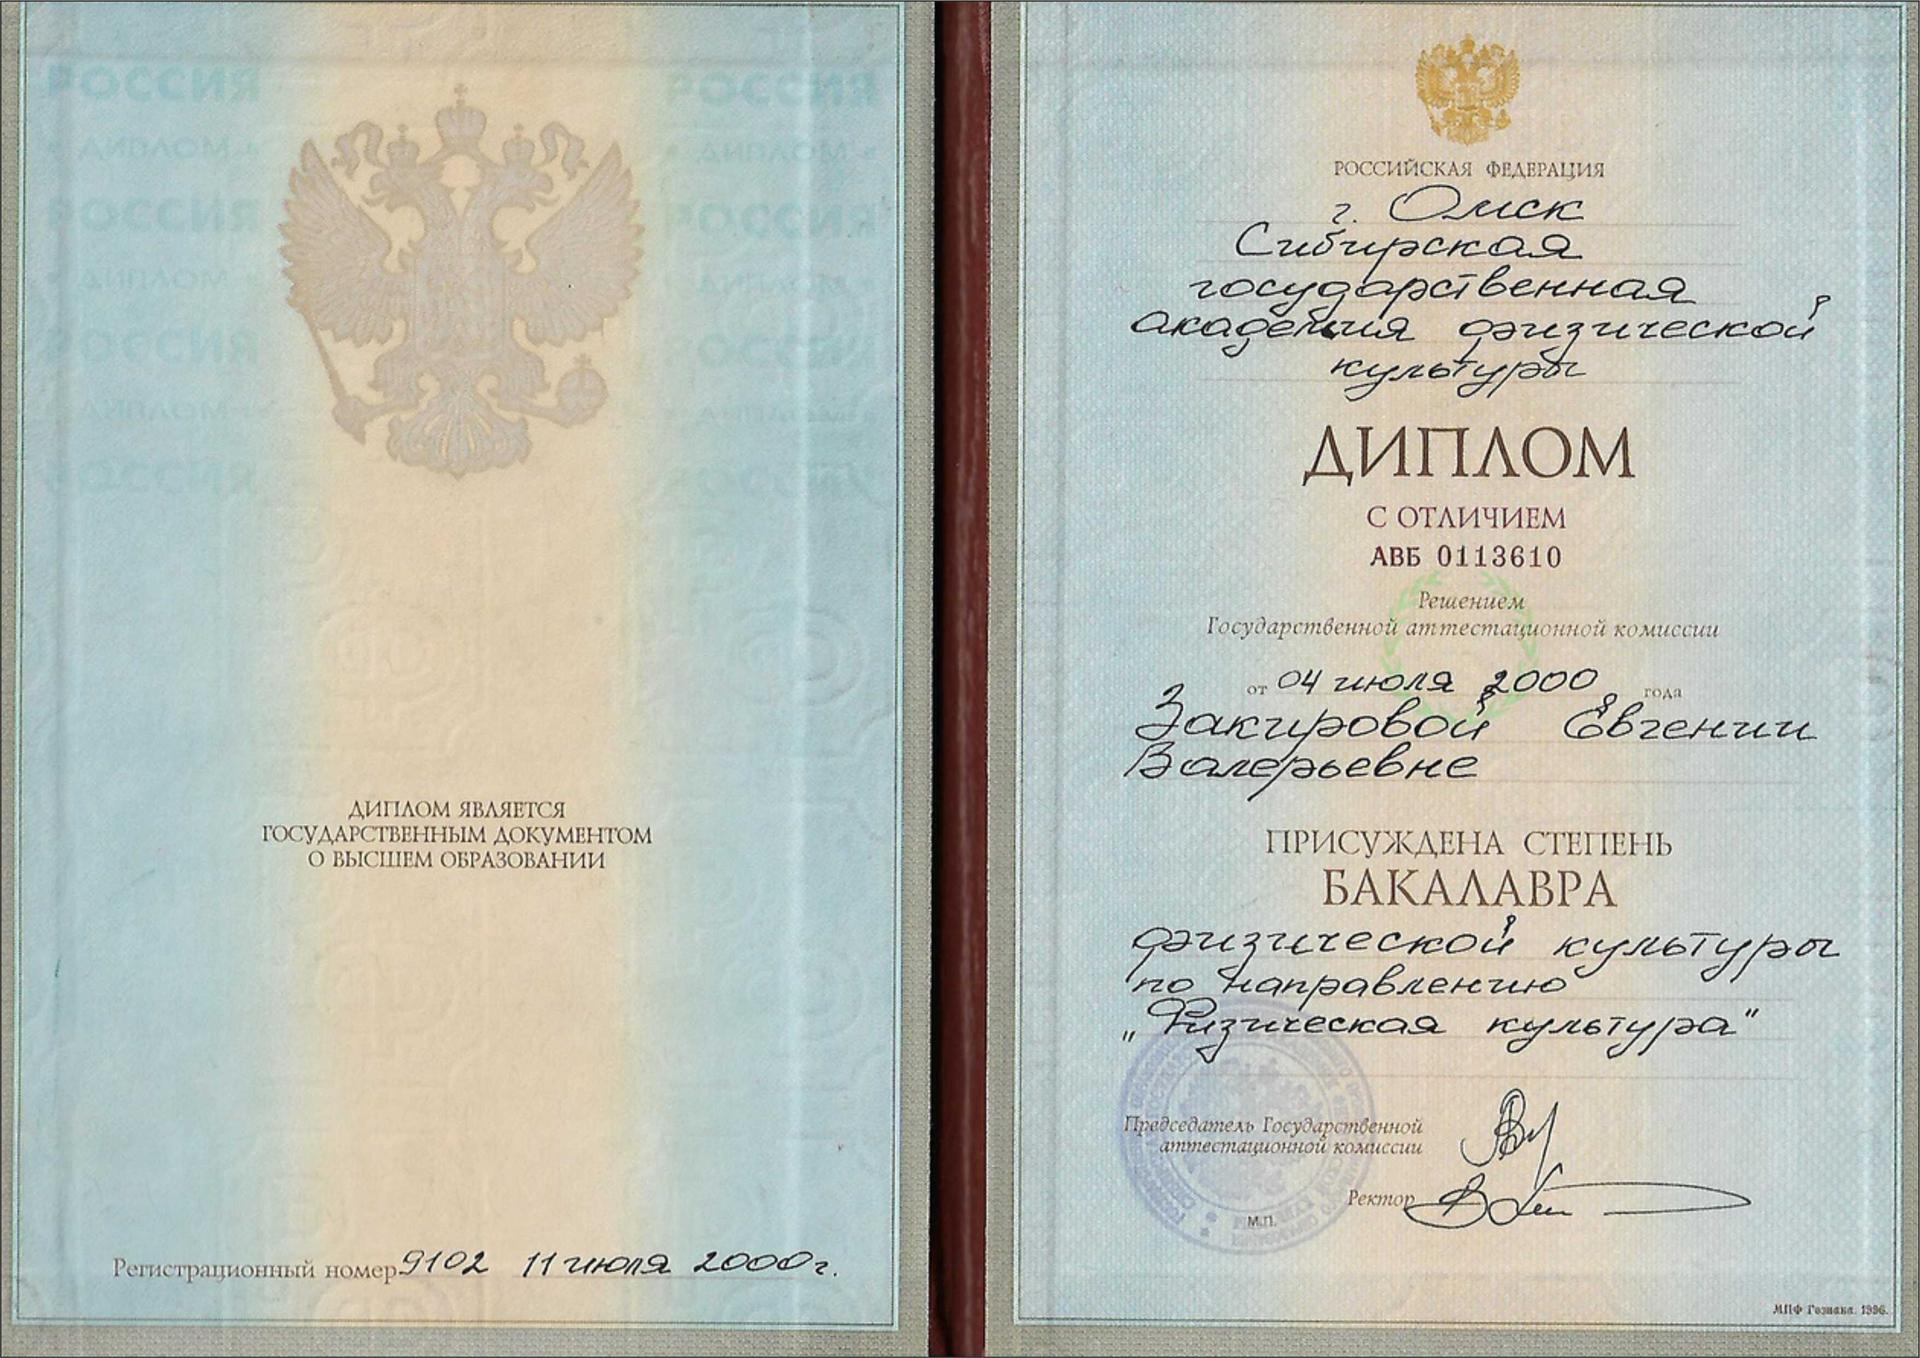 РОССИЯ РОССИЯ
ДИПЛОМ ДИПЛОМ
РОССИЯ РОССИЯ
ДИПЛОМ ДИПЛОМ
РОССИЯ РОССИЯ
ДИПЛОМ ДИПЛОМ
РОССИЯ РОССИЯ
ДИПЛОМ ЯВЛЯЕТСЯ
ГОСУДАРСТВЕННЫМ ДОКУМЕНТОМ
О ВЫСШЕМ ОБРАЗОВАНИИ
Регистрационный номер 9102 11 июля 2000 г.
РОССИЙСКАЯ ФЕДЕРАЦИЯ
г. Омск
Сибирская
государственная
академия физической
культуры
ДИПЛОМ
С ОТЛИЧИЕМ
АВБ 0113610
Решением
Государственной аттестационной комиссии
от 04 июля 2000 года
Закировой Евгении
Валерьевне
ПРИСУЖДЕНА СТЕПЕНЬ
БАКАЛАВРА
физической культуры
по направлению
„Физическая культура"
Председатель Государственной
аттестационной комиссии
Ректор
М.П.
МПФ Гознака. 1996.